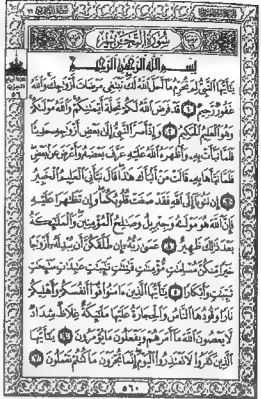 سورة التحريم
بسم الله الرحمن الرحيم
يا أيها النبي لم تحرم ما أحل الله لك تبتغي مرضات أزواجك والله
غفور رحيم ١ قد فرض الله لكم تحلة أيمانكم والله مولاكم
وهو العليم الحكيم ٢ وإذ أسر النبي إلى بعض أزواجه حديثا
فلما نبأت به وأظهره الله عليه عرف بعضه وأعرض عن بعض
فلما نبأها به قالت من أنبأك هذا قال نبأني العليم الخبير
٣ إن تتوبا إلى الله فقد صغت قلوبكما وإن تظاهرا عليه
فإن الله هو مولاه وجبريل وصالح المؤمنين والملائكة
بعد ذلك ظهير ٤ عسى ربه إن طلقكن أن يبدله أزواجا
خيرا منكن مسلمات مؤمنات قانتات تائبات عابدات سائحات
ثيبات وأبكارا ٥ يا أيها الذين آمنوا قوا أنفسكم وأهليكم
نارا وقودها الناس والحجارة عليها ملائكة غلاظ شداد
لا يعصون الله ما أمرهم ويفعلون ما يؤمرون ٦ يا أيها
الذين كفروا لا تعتذروا اليوم إنما تجزون ما كنتم تعملون ٧
٥٦٠